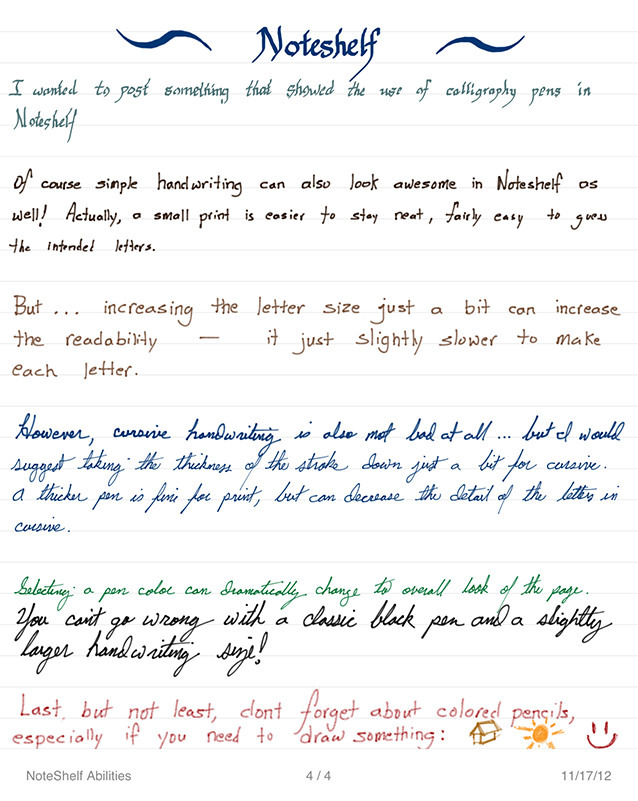 Noteshelf
I wanted to post something that showed the use of calligraphy pens in
Noteshelf
Of course simple handwriting can also look awesome in Noteshelf as
well! Actually, a small print is easier to stay neat, fairly easy to guess
the intended letters.
But ... increasing the letter size just a bit can increase
the readability — it just slightly slower to make
each letter.
However, cursive handwriting is also not bad at all ... but I would
suggest taking the thickness of the stroke down just a bit for cursive.
A thicker pen is fine for print, but can decrease the detail of the letters in
cursive.
Selecting a pen color can dramatically change to overall look of the page.
You can't go wrong with a classic black pen and a slightly
larger handwriting size!
Last, but not least, dont forget about colored pencils,
especially if you need to draw something:
NoteShelf Abilities 4 / 4 11/17/12